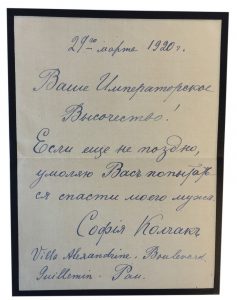 29го марта 1920 г.
Ваше Императорское
Высочество!
Если еще не поздно,
умоляю Васъ попытать-
ся спасти моего мужа.
Софія Колчакъ
Villa Alexandrine. Boulevard
Guillemin. Pau.